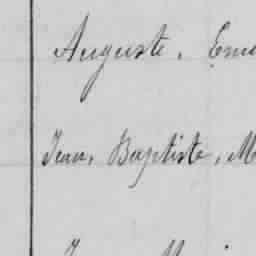 Auguste, Em
Jean, Baptiste, M